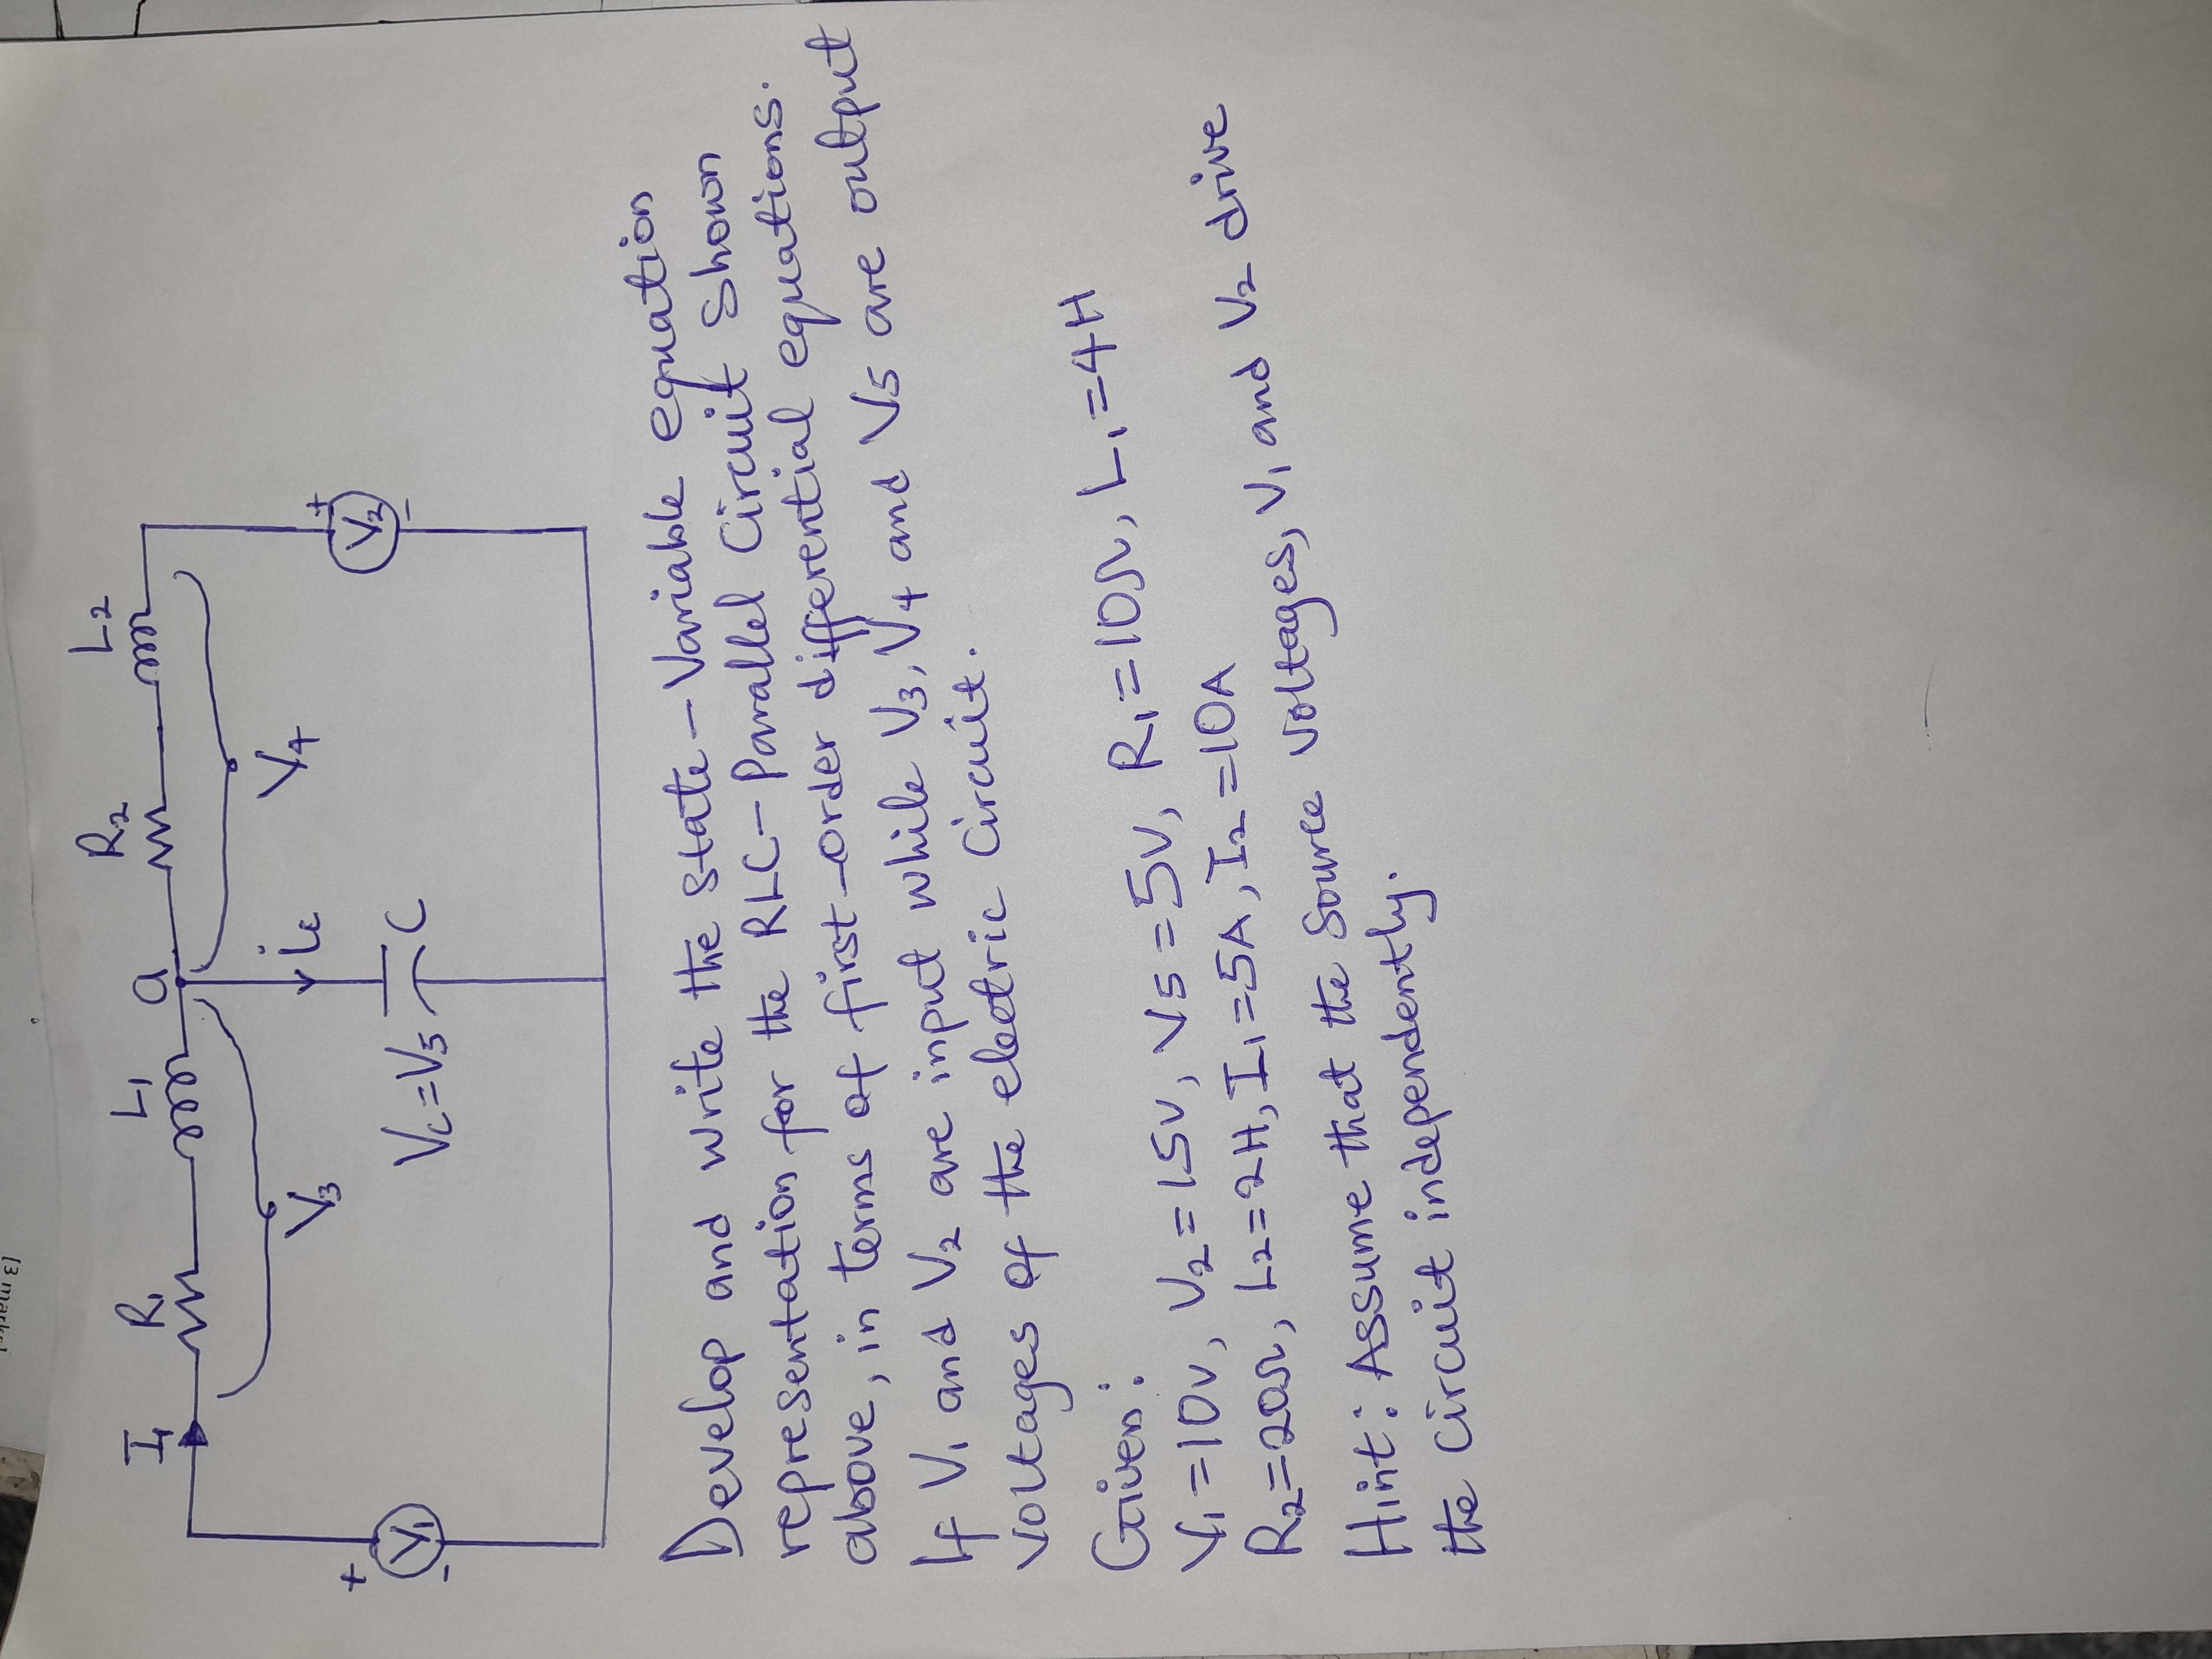 I₁ R₁ L₁ a R₂ L₂
V₃ V₄
+ V₁ -
Vc=V5 ic C
+ V₂ -
Develop and write the state-Variable equation
representation for the RLC-Parallel Circuit Shown
above, in terms of first-order differential equations.
If V₁ and V₂ are input while V₃, V₄ and V5 are output
voltages of the electric circuit.
Given:
V₁=10V, V₂=15V, V5=5V, R₁=10Ω, L₁=4H
R₂=20Ω, L₂=2H, I₁=5A, I₂=10A
Hint: Assume that the Source voltages, V₁ and V₂ drive
the circuit independently.